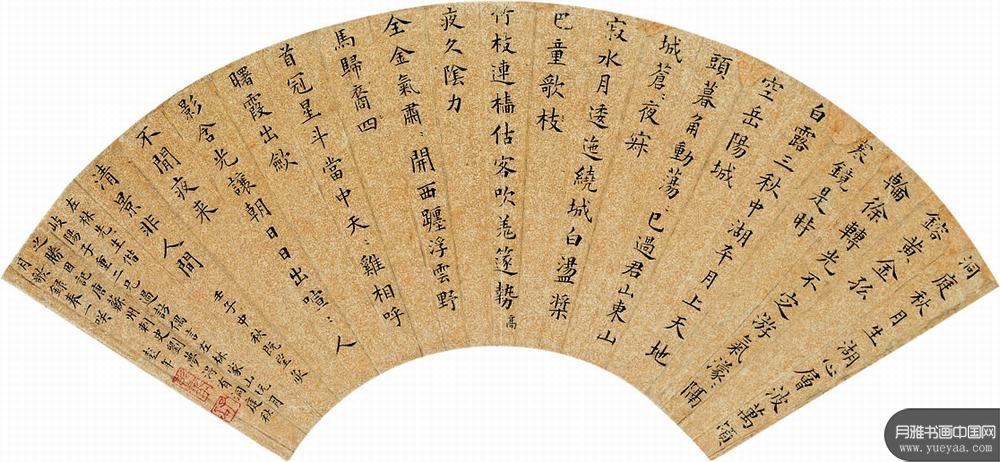 洞庭秋月生湖心層波萬頃
鎔黃金孤
輪徐轉光不定游氣濛〻隔
寒鏡是時
白露三秋中湖平月上天地
空岳陽城
頭暮角動蕩〻已過君山東山
城蒼〻夜寂
寂水月逶迤繞城白盪槳
巴童歌枝
竹枝連檣估客吹羌篴勢高
夜久陰力
全金氣肅〻開西躔浮雲野
馬歸裔四
首冠星斗當中天〻雞相呼
曙霞出斂
影含光讓朝日日出喧〻人
不閒夜来
清景非人間
壬子中秋既望
左林先生偕
月雅书画中国网
www.yueyaa.com